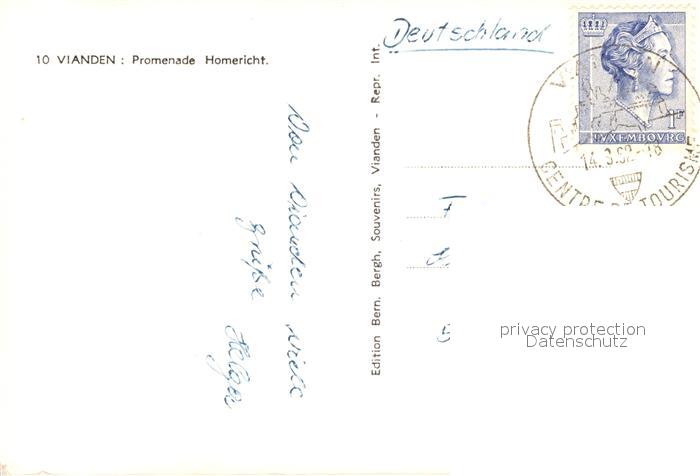 10 VIANDEN : Promenade Homericht.
Von Vianden viele
Grüße
Helga
Edition Bern. Bergh, Souvenirs, Vianden - Repr. Int.
Deutschland
1F
LUXEMBOURG
VIANDEN
14.3.62-18
CENTRE DE TOURISME
F
privacy protection
Datenschutz